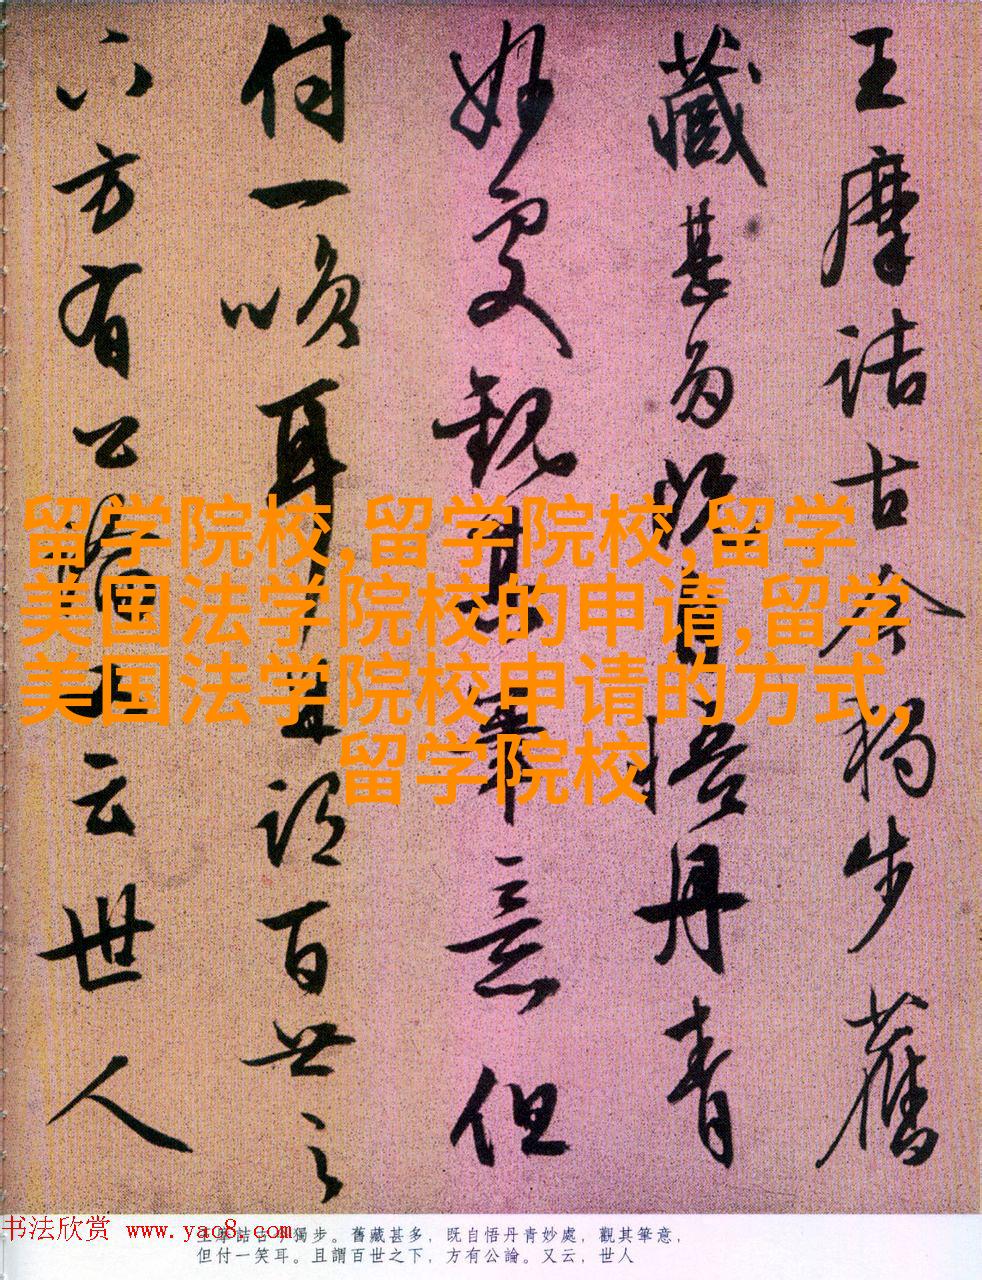 王摩詰古今獨步舊
藏甚多既自悟丹青
妙處觀其筆意但
付一咲耳且謂百世之
下方有公論又云世人
留学院校,留学院校,留学
美国法学院校的申请,留学
美国法学院校申请的方式,
留学院校
书法欣赏 www.yac8.com
王摩詰古今獨步。舊藏甚多，既自悟丹青妙處，觀其筆意，
但付一笑耳。且謂百世之下，方有公論。又云，世人